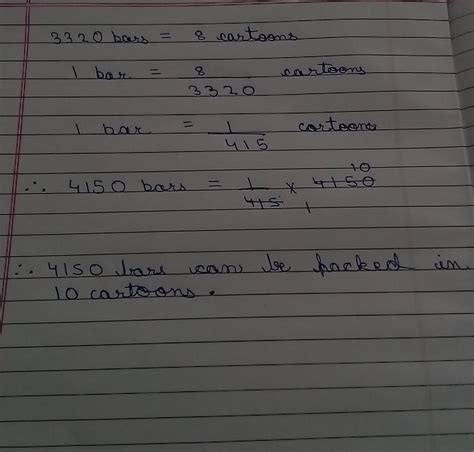 3320 bars = 8 cartoons
1 bar = 8/3320 cartoons
1 bar = 1/415 cartoons
∴ 4150 bars = 1/415 × 4150 10
1
∴ 4150 bars can be packed in
10 cartoons.